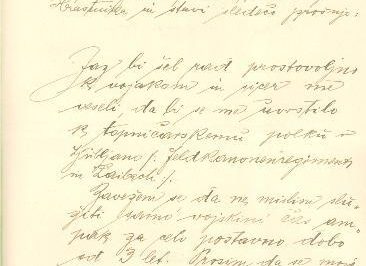 Hrastnika in stavi sledečo prošnjo:
Jaz bi šel rad prostovoljno
k vojakom in sicer me
veseli, da bi se me uvrstilo
k topničarskemu polku v
Ljubljani /: Feldkanonenregiment
in Laibach :/.
Zavežem se da ne mislim slu-
žiti samo vojskini čas am-
pak za celo postavno dobo
od 3 let. Prosim da se moji